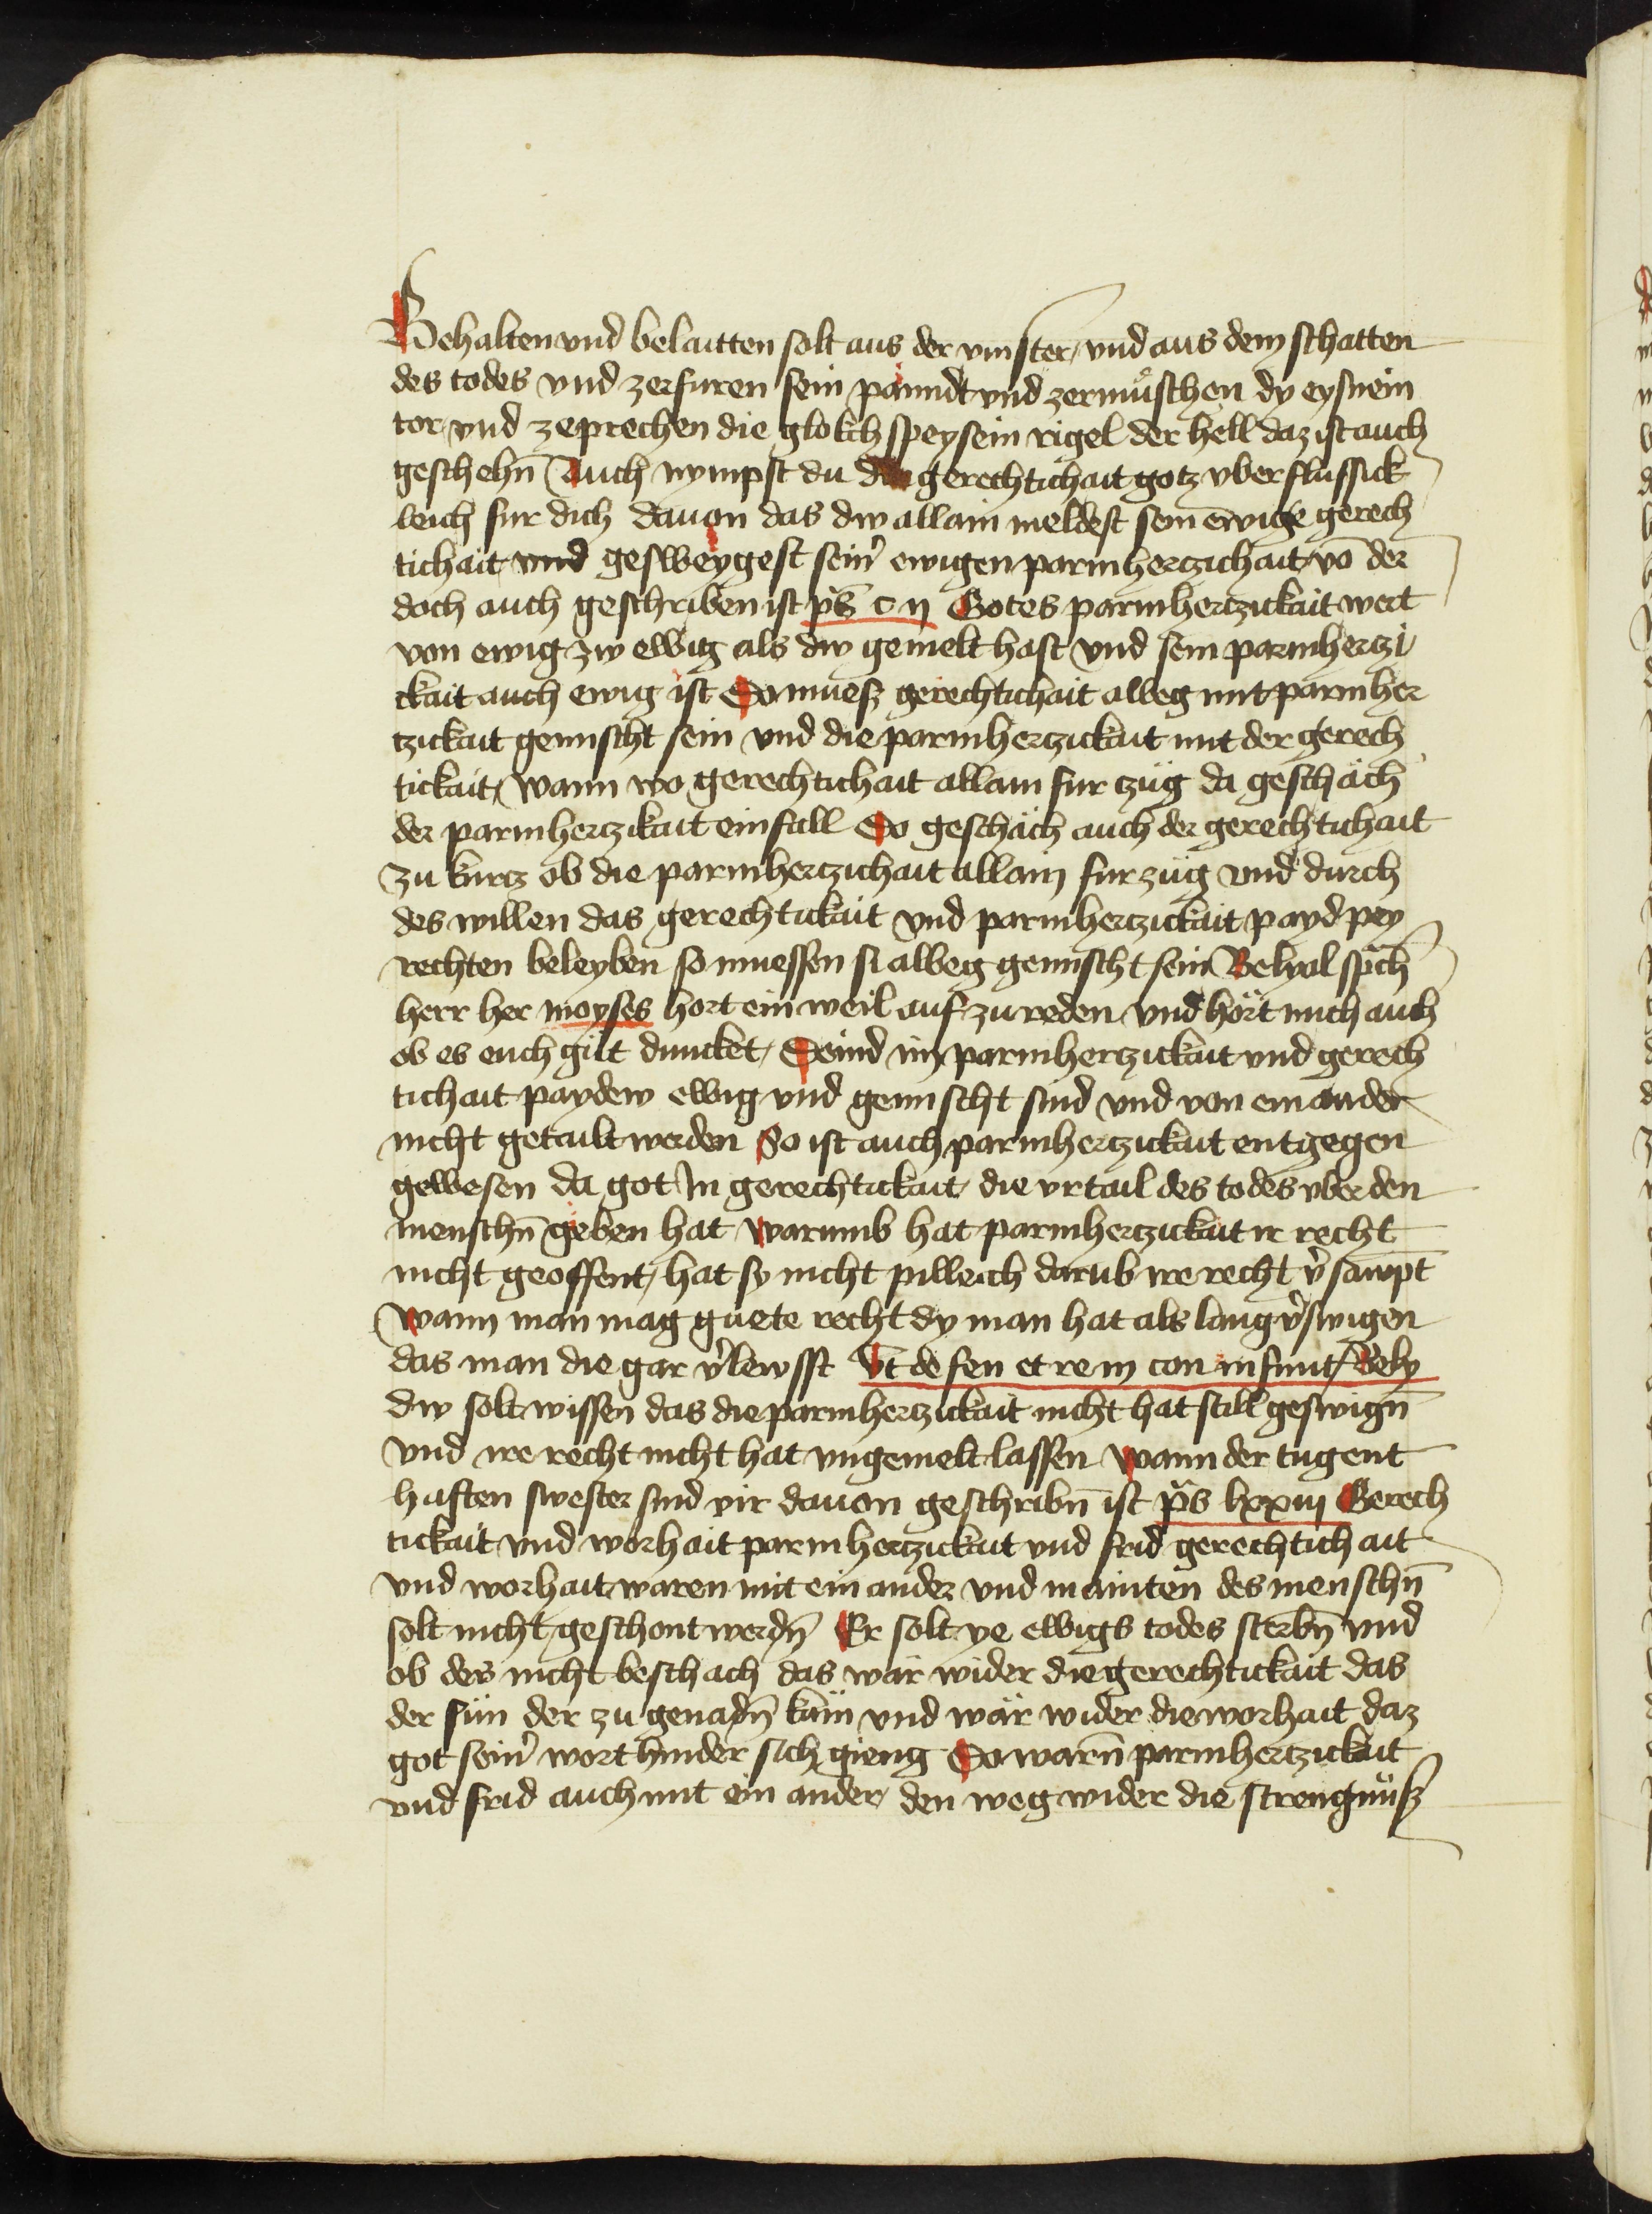 Behalten vnd belaitten solt aus der vinster / vnd aus dem schatten
des todes vnd zerfuren sein panndt vnd zermüschen dy eysnein
tor vnd zeprechen die glokch speysein rigel der hell daz ist auch
geschehn̄ Auch nympst du die gerechtichait gotz vberflussick
leich fur dich dauon das dw allain meldest sein ewige gerech
tichait vnd gesweygest sein̾ ewigen parmhertzichait / vō der
doch auch geschriben ist ps̄ c ij Gotes parmhertzickait wert
von ewig zw ewig als dw gemelt hast vnd sein parmhertzi
ckait auch ewig ist So muesz gerechtichait alweg mit parmher
tzickait gemischt sein vnd die parmhertzickait mit der gerech
tickait / wann wo gerechtichait allain fur züg da geschäch
der parmhertzikait ein fall So geschäch auch der gerechtichait
zu kurtz ob die parmhertzichait allain fur züg vnd durch
des willen das gerechtickait vnd parmhertzickait payd pey
rechten beleyben so muessen si alweg gemischt sein Belyal sp̄ch
herr her moyses hort ein weil auf zu reden vnd hört mich auch
ob es euch güt duncket / Seind nu parmhertzickait vnd gerech
tichait paydew ewig vnd gemischt sind vnd von einander
nicht getailt werden So ist auch parmhertzickait entgegen
gewesen da got In gerechtickait die vrtail des todes vber den
menschn̄ geben hat warumb hat parmhertzickait ir recht
nicht geoffent / hat sy nicht pilleich darūb ire recht v̾sawmpt
Wann man mag guete recht dy man hat als lang v̾swigen
das man die gar v̾lewsst Vt de fen et rem con in fiunt / Bely
dw solt wissen das die parmhertzickait nicht hat still geswign̄
vnd ire recht nicht hat vngemelt lassen Wann der tugent
hafften swester sind vir dauon geschribn̄ ist ps̄ lxxxiiij Gerech
tickait vnd worhait parmhertzickait vnd frid gerechtichait
vnd worhait waren mit ein ander vnd mainten des menschn̄
solt nicht geschont werdn̄ Er solt ye ewigs todes sterbn̄ vnd
ob des nicht beschach das wär wider die gerechtickait das
der sün der zu genadn̄ käm vnd wär wider die worhait daz
got sein̾ wort hinder sich gieng So warn̄ parmhertzickait
vnd frid auch mit ein ander / den weg wider die strengnüsz